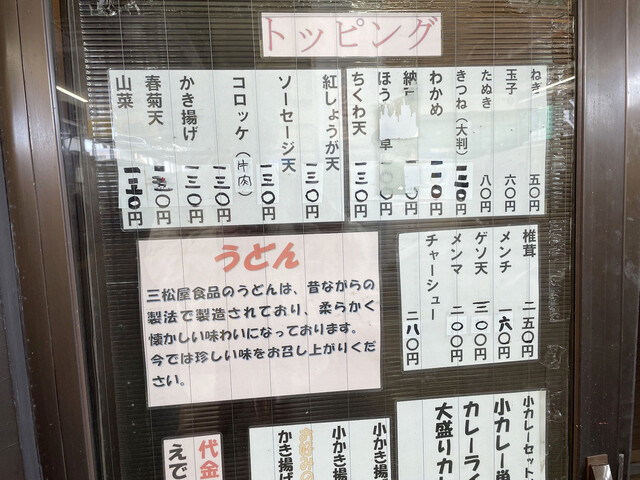 トッピング
ねぎ 五〇円
玉子 六〇円
たぬき 八〇円
きつね(大判)
わかめ
ほう
ちくわ天 一三〇円
紅しょうが天 一三〇円
ソーセージ天 一三〇円
コロッケ(牛肉) 一三〇円
かき揚げ 一三〇円
春菊天
山菜
椎茸 二五〇円
メンチ 一六〇円
ゲソ天 三〇〇円
メンマ 二〇〇円
チャーシュー 二八〇円
うどん
三松屋食品のうどんは、昔ながらの
製法で製造されており、柔らかく
懐かしい味わいになっております。
今では珍しい味をお召し上がりくだ
さい。
小カレーセット
小カレー単
カレーライ
大盛りカ
小かき揚
小かき揚
かき揚げ
代金
えで